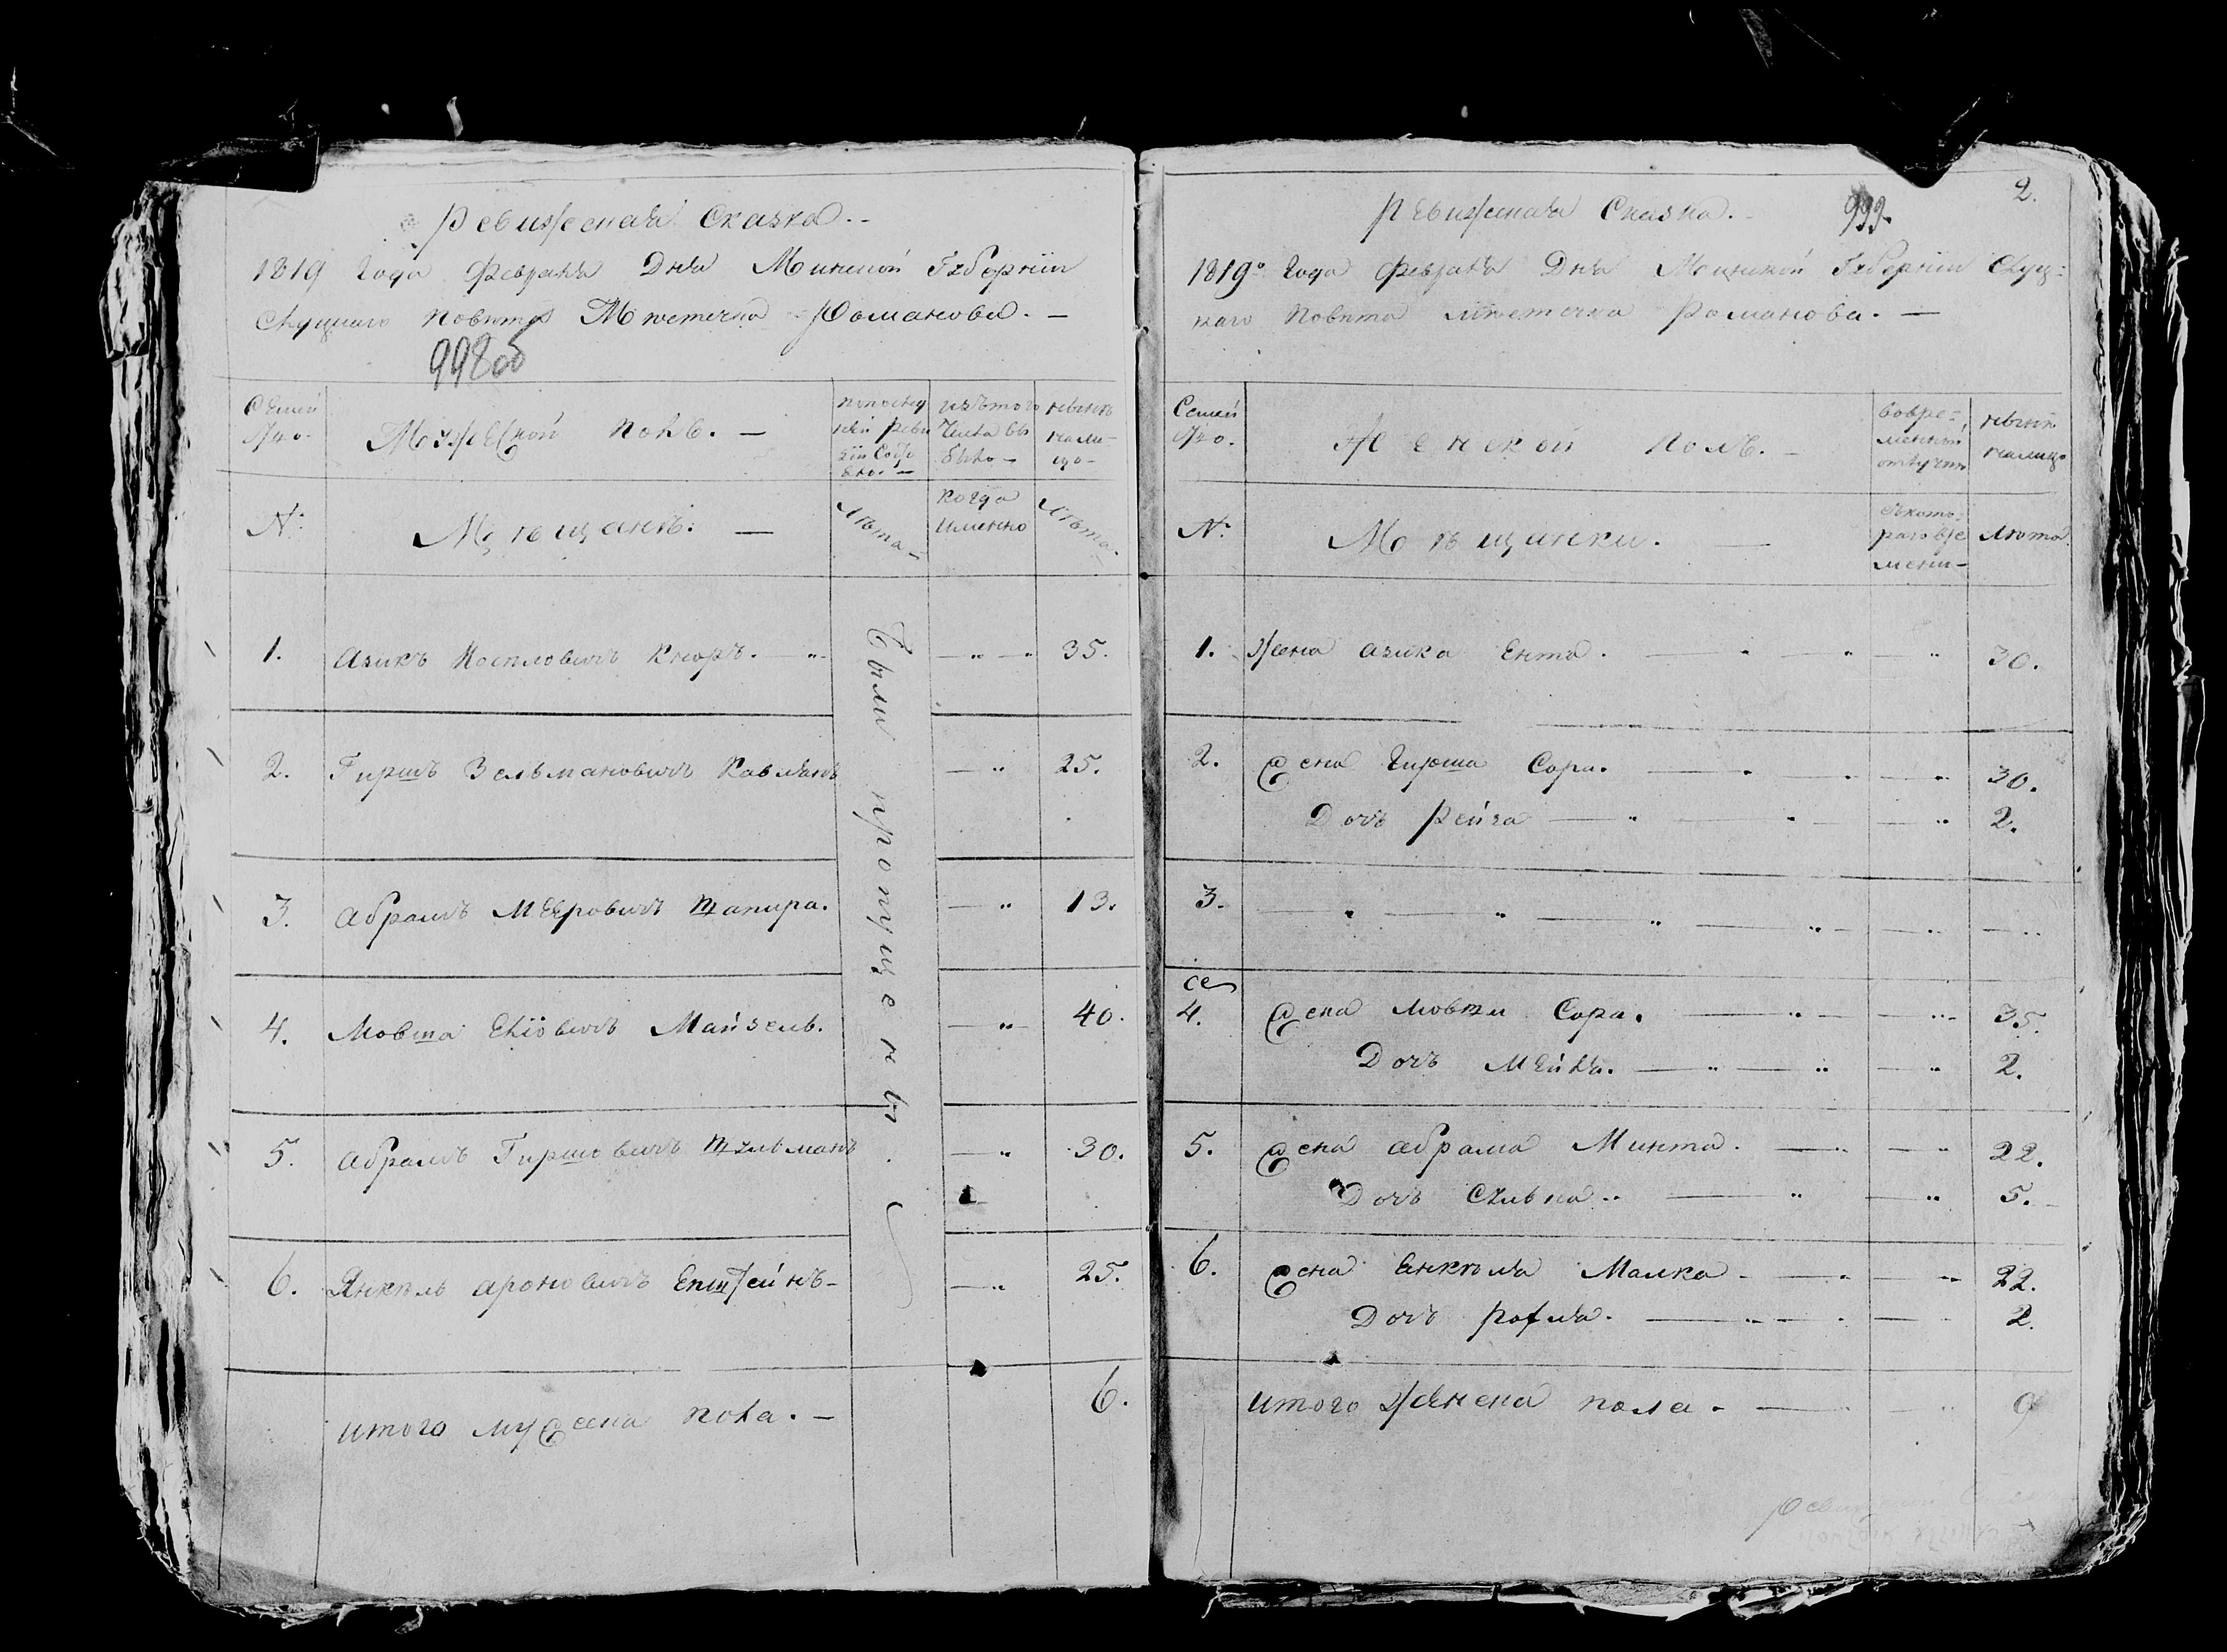 Ревижеская Сказка.
1819 Года Февраля Дня Минской Губернiи
Слуцкаго Повѣта Мѣстечка Романова. —
998об
Семей
Мужеской полъ. —
по послед
ней реви
зiи состо
яло. —
изъ того
числа вы
было —
нынѣ
на ли-
цо —
№.
Мѣщанѣ. —
Лѣта —
когда
именно
Лѣта. —
Были пропущены.
1. Азикъ Іоселовичъ Кноръ. 35.
2. Гиршъ Зельмановичъ Кавланъ 25.
3. Абрамъ Меэровичъ Шапира. 13.
4. Мовша Елiовичъ Майзель. 40.
5. Абрамъ Гиршовичъ Шульманъ 30.
6. Янкель Ароновичъ Епштейнъ — 25.
итого мужеска пола. — 6.
2.
Ревижеская Сказка.
999.
1819го Года Февраля Дня Минской Губернiи Слуц-
каго Повѣта мѣстечка Романова. —
Семей
Женской Полъ. —
вовре-
менной
отлучки
нынѣ
налицо
№.
Мѣщанки. —
съ кото-
раго вре
мени —
Лѣта
1. Жена Азика Ента. 30.
2. Жена Гирша Сора. 30.
Дочъ Рейза 2.
3.
4. Жена Мовши Сора. 35.
Дочъ Мейля. 2.
5. Жена Абрама Минта. 22.
Дочъ 5.
6. Жена Янкѣля Малка. 22.
Дочъ 2.
итого Женска пола. 9